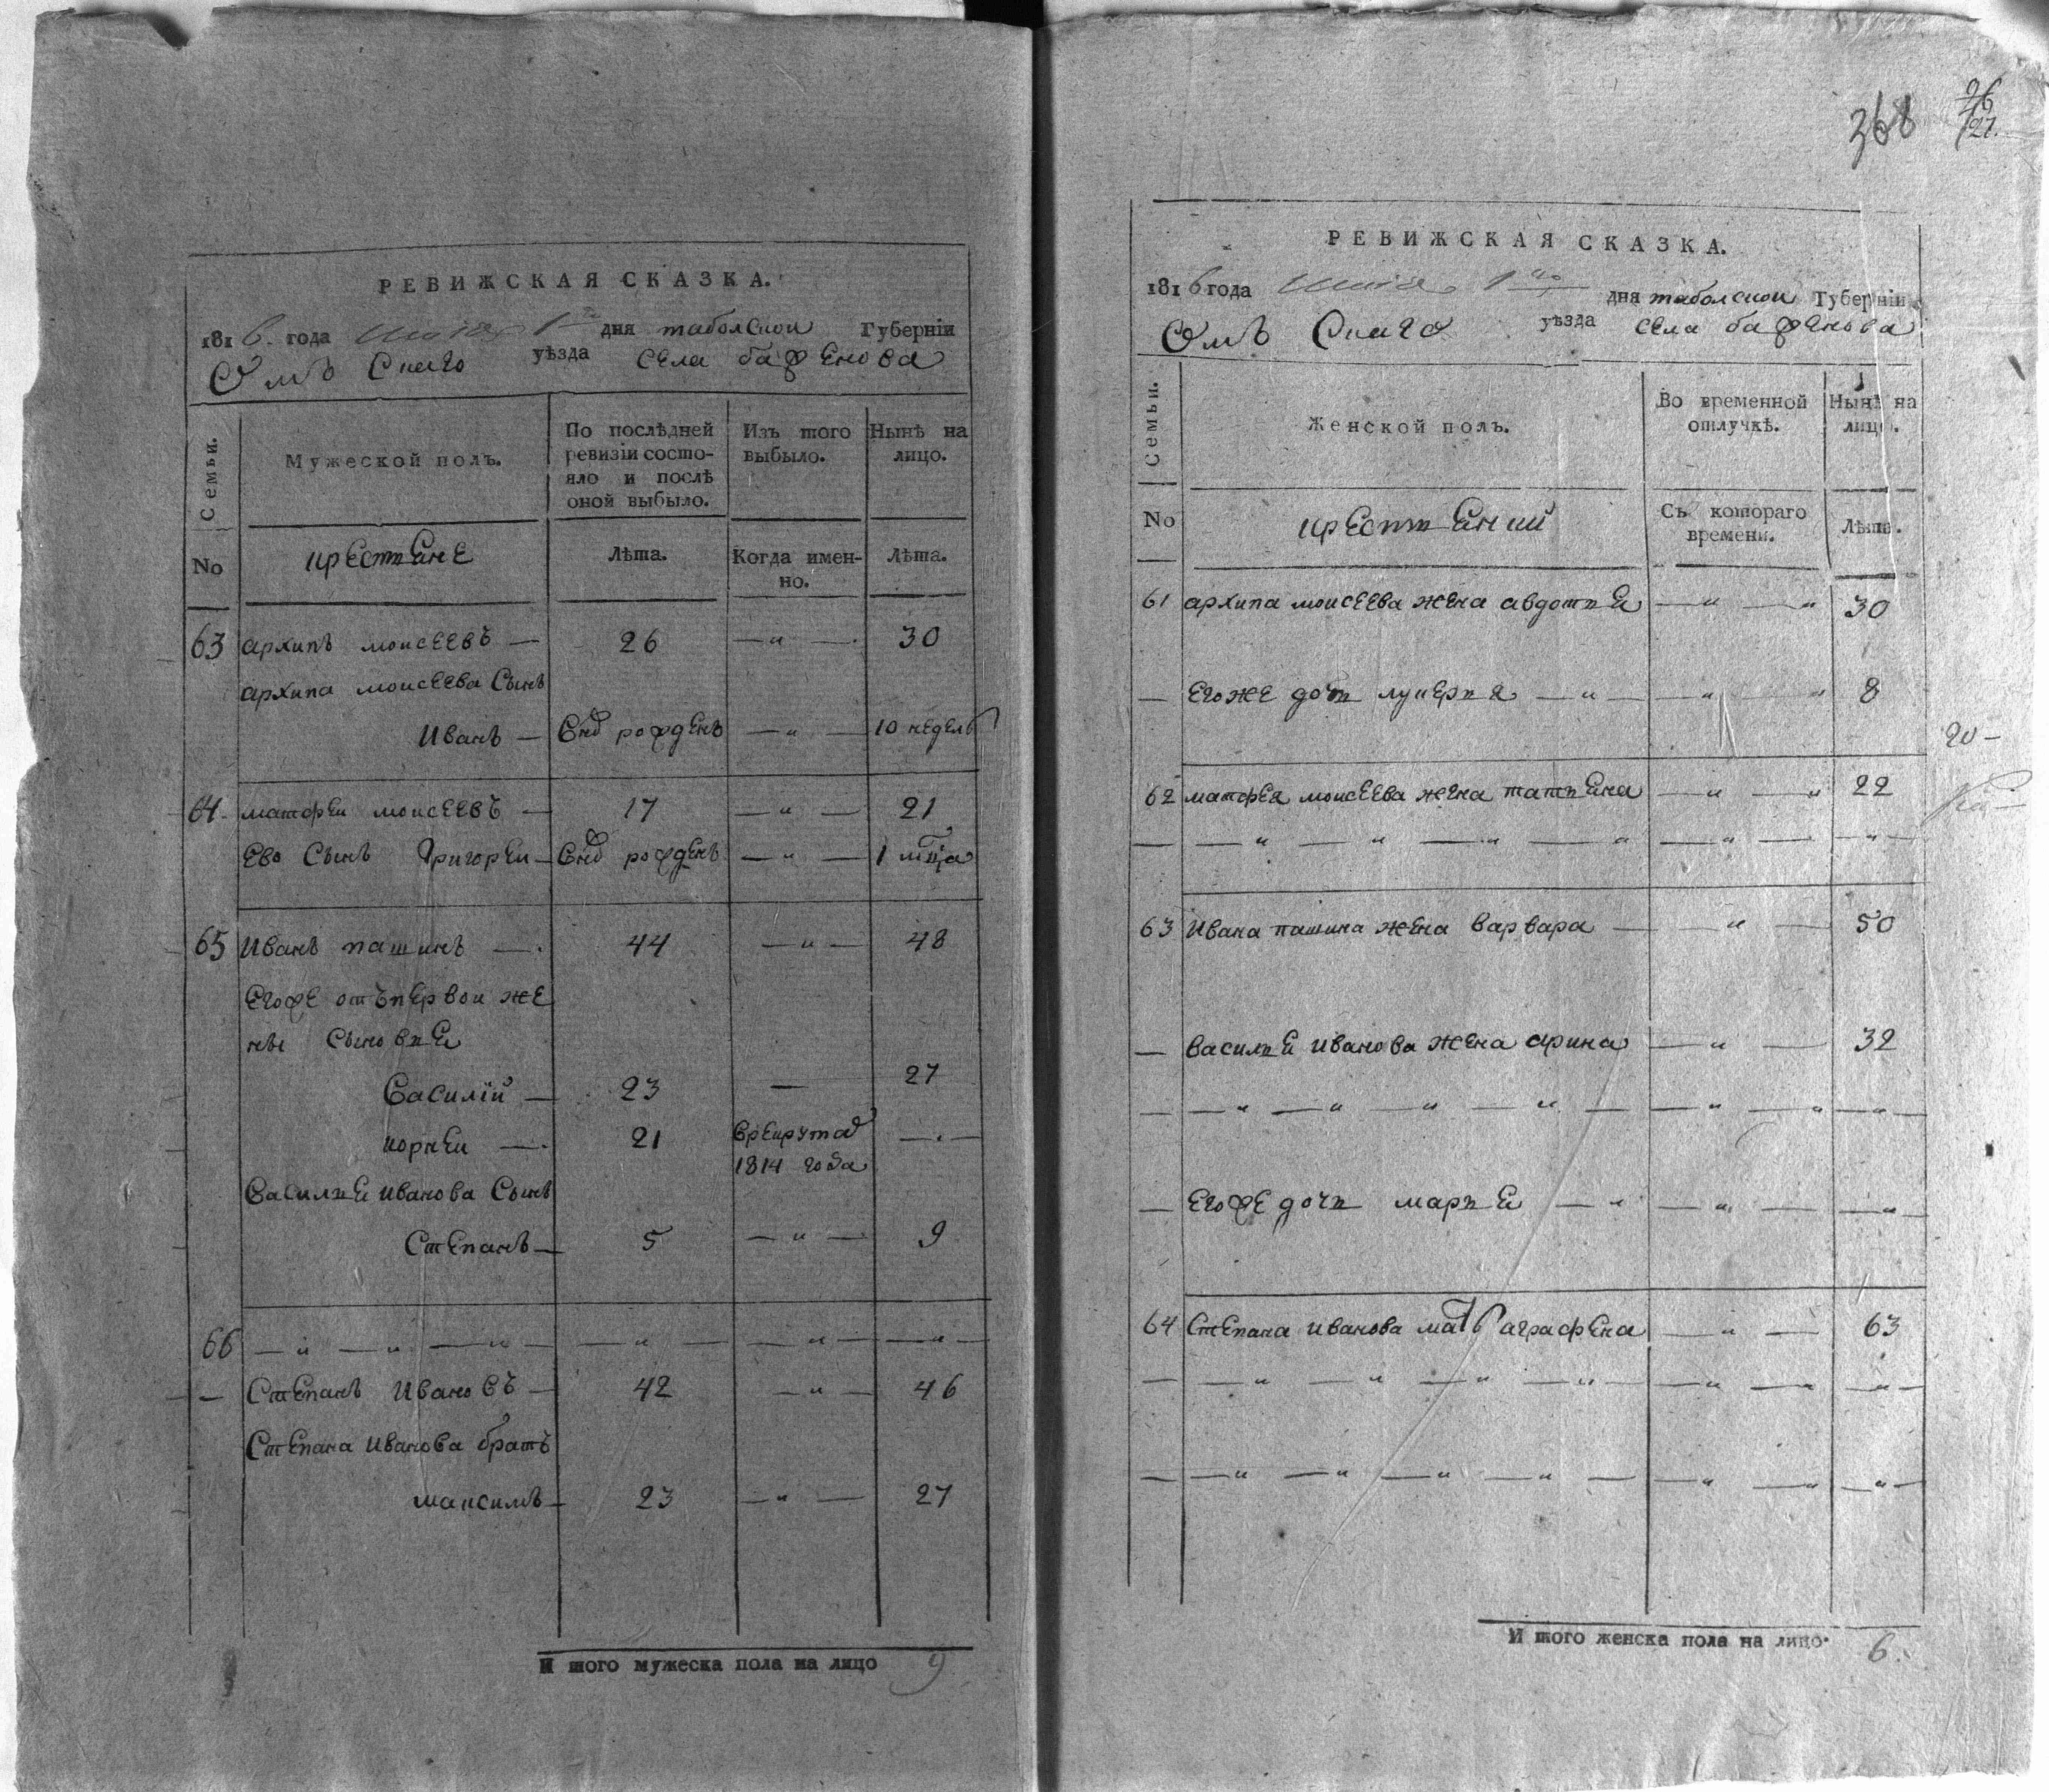 РЕВИЖСКАЯ СКАЗКА.
1816. года июля 1 дня таболскои Губерніи
Омъ Скаго уѣзда села бафенова
Семьи. Мужеской полъ. По послѣдней ревизіи состояло и послѣ оной выбыло. Изъ того выбыло. Нынѣ на лицо.
No крестьяне Лѣта. Когда именно. Лѣта.
63 архипъ моисеевъ — 26 — „ — 30
архипа моисеева Сынъ
Иванъ — внов рожденъ — „ — 10 недель
64. матфеи моисеевъ — 17 — „ — 21
ево Сынъ Григореи — внов рожденъ — „ — 1 мца
65 Иванъ пашинъ — 44 — „ — 48
егоже отъ первои же
ны Сыновья
Василій — 23 — 27
корнеи — 21 врекрута — „ —
1814 года
Василья иванова Сынъ
Степанъ — 5 — „ — 9
66 — „ — „ — „ — — „ — — „ — — „ —
— Степанъ Ивановъ — 42 — „ — 46
Степана иванова братъ
максимъ — 23 — „ — 27
И того мужеска пола на лицо 9
368
96
97.
РЕВИЖСКАЯ СКАЗКА.
1816 года июля 1го дня таболскои Губерніи
Омъ Скаго уѣзда села бафенова
Семьи. Женской полъ. Во временной отлучкѣ. Нынѣ на лицо.
No крестьянки Съ котораго времени. Лѣта.
61 архипа моисеева жена авдотья — „ — „ 30
— егоже дочь лукерья — „ — — „ — „ 8
62 матфея моисеева жена татьяна — „ — „ 22
— — „ — „ — „ — „ — „ — — „ —
63 Ивана пашина жена варвара — — „ — 50
— василья иванова жена арина — „ — 32
— — „ — „ — „ — „ — — „ — „ — „ —
— егоже дочь марья — „ — „ — — „ —
64 Степана иванова мать аграфена — „ — 63
— — „ — „ — „ — „ — — „ — „ — „ —
— — „ — „ — „ — „ — — „ — „ — „ —
И того женска пола на лицо. 6.